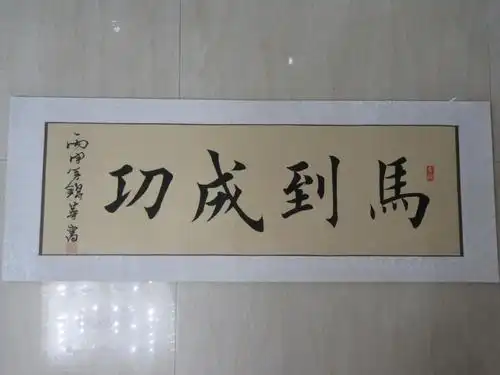 馬到成功
丙申年錦華書